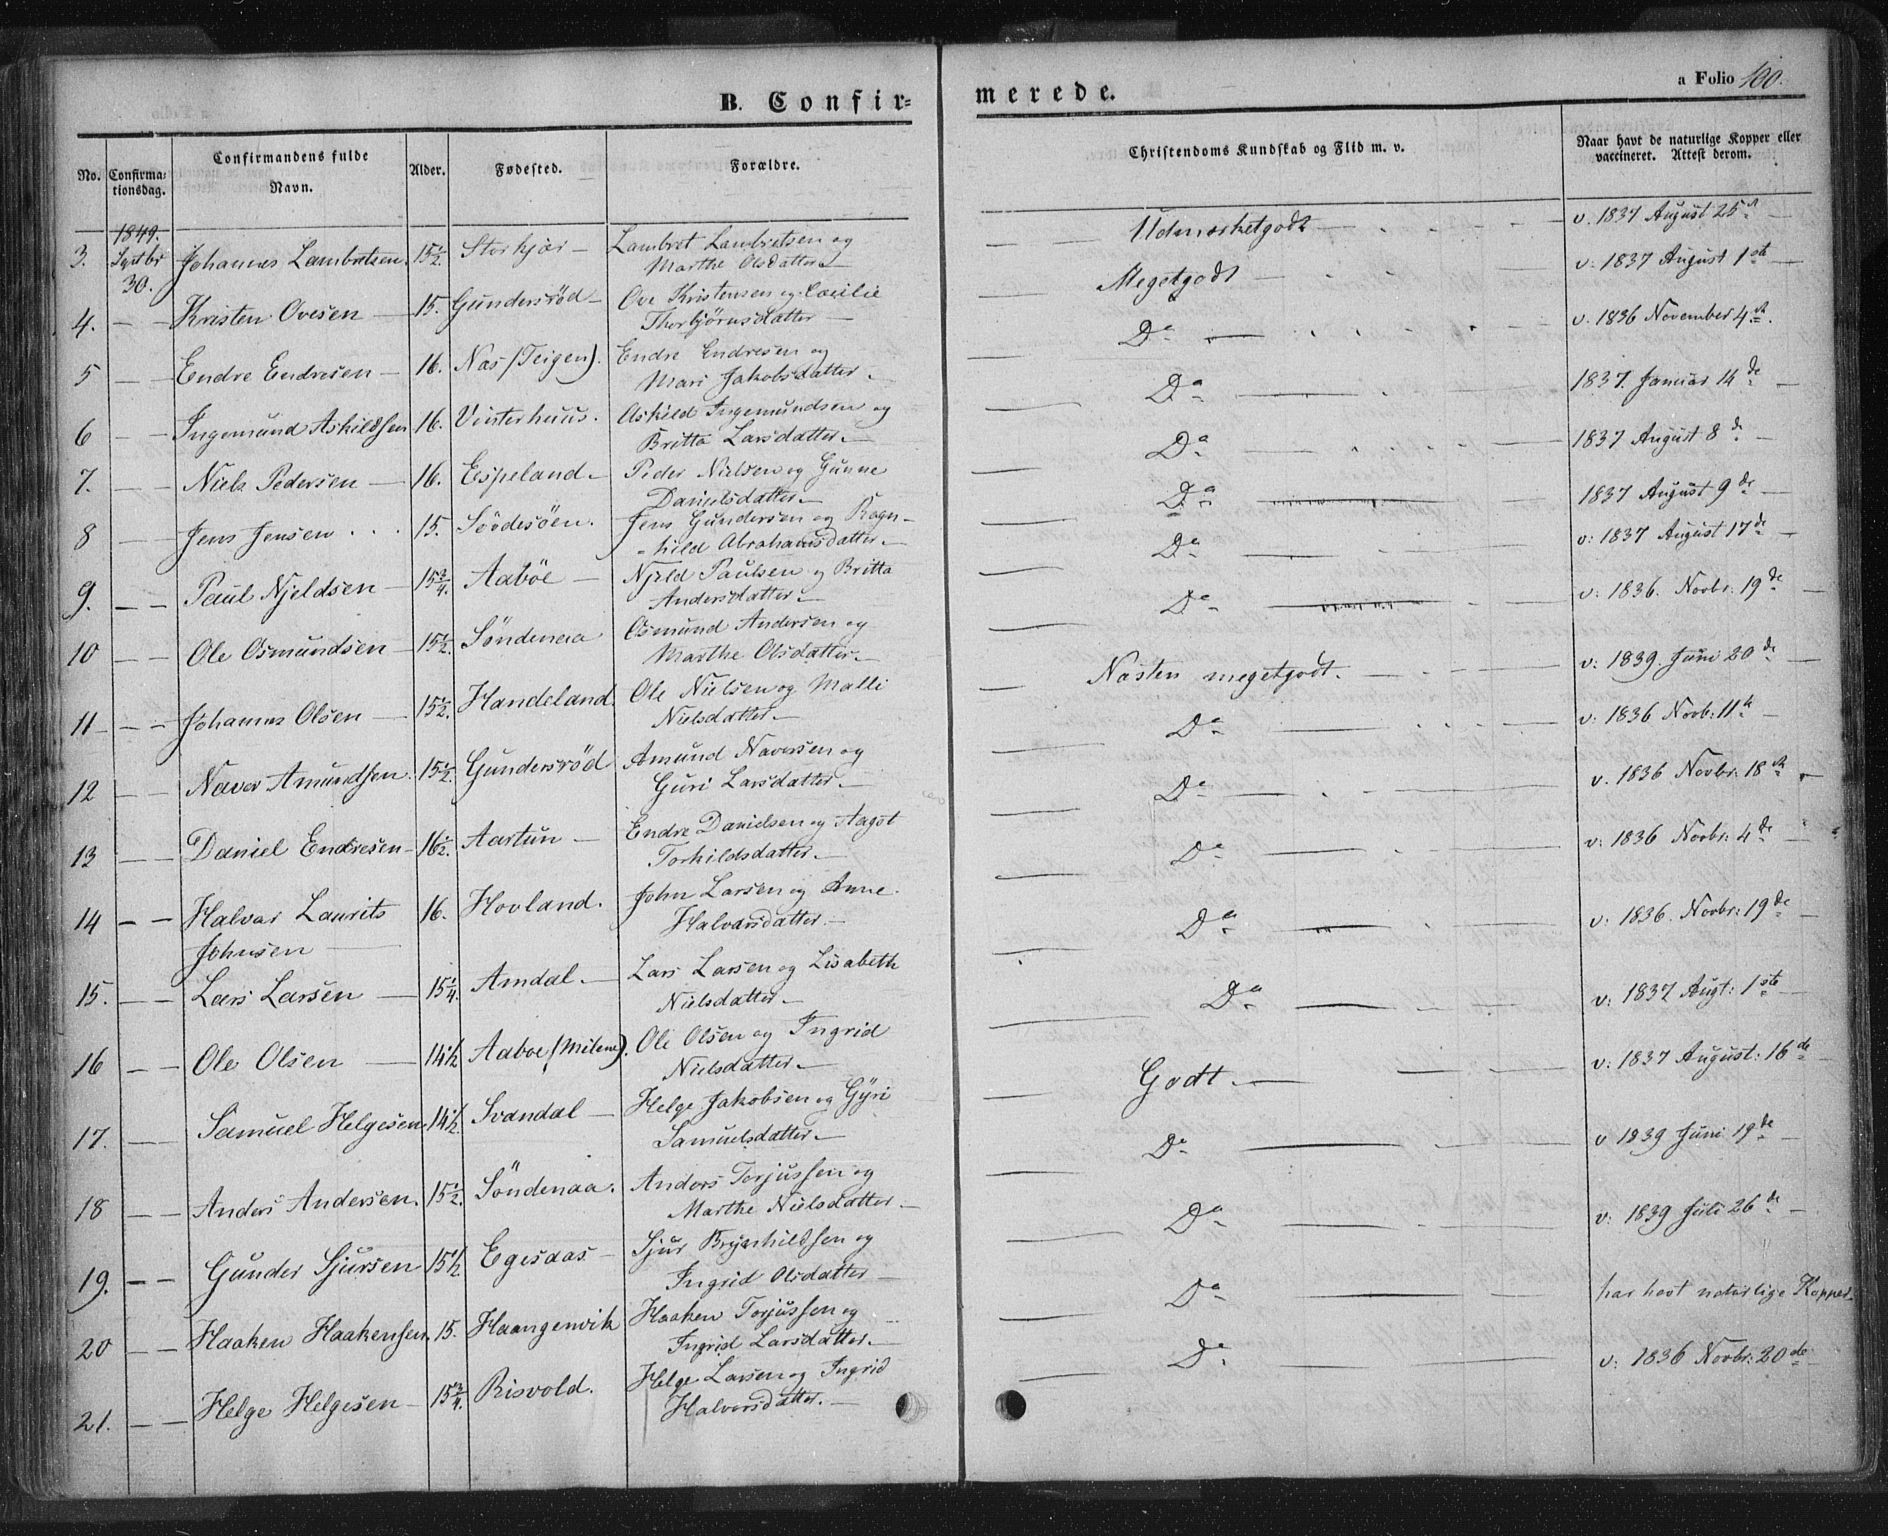 B. Confir=
merede.
a Folio 100.
No.
Confirma=
tionsdag.
Confirmandens fulde
Navn.
Alder.
Fødested.
Forældre.
Christendoms Kundskab og Flid m. v.
Naar havt de naturlige Kopper eller
vaccineret. Attest derom.
1849.
3. Septbr Johannes Lambretsen. 15½. Storkjær — Lambret Lambretsen og
30. Marthe Olsdatter. —
Udmærketgodt — v. 1837 August 25de
4. — — Kristen Ovesen — 15. Gundersröd — Ove Kristensen og Cæcilie
Thorbjörnsdatter —
Megetgodt — v: 1837 August 1ste —
5 — — Endre Endresen — 16. Næs (Teigen). Endre Endresen og
Mari Jakobsdatter.
Do — v. 1836 November 4de.
6 — — Ingemund Askildsen 16. Vinterhuus. Askild Ingemundsen og
Britta Larsdatter. —
Do — 1837. Januar 14de —
7. — — Niels Pedersen — 16. Espeland — Peder Nielsen og Gunne
Danielsdatter. —
Do — 1837 August 8de —
8 — — Jens Jensen . . . 15. Sövdesöen. Jens Gundersen og Ragn-
-hild Abrahamsdatter. —
Do — 1837 August 9de —
9. — — Paul Njeldsen — 15¾. Aaböe — Njeld Paulsen og Britta
Andersdatter. —
Do — v: 1837 August 17de —
10 — — Ole Osmundsen — 15½. Söndenaa Osmund Andersen og
Marthe Olsdatter. —
Do — v: 1836. Novbr: 19de —
11 — — Johannes Olsen — 15½. Handeland Ole Nielsen og Malli
Nielsdatter. —
Næsten megetgodt. — v: 1839. Juni 20de —
12 — — Naver Amundsen. 15½. Gundersröd Amund Naversen og
Guri Larsdatter. —
Do — v: 1836 Novb: 11te —
13 — — Daniel Endresen — 16½. Aartun — Endre Danielsen og Aagot
Torkildsdatter. —
Do — v. 1836 Novbr: 18de —
14 — — Halvar Laurits 16. Hovland. John Larsen og Anne
Johnsen — Halvarsdatter. —
Do — v: 1836 Novbr: 4de —
15. — — Lars Larsen — 15¼. Amdal. — Lars Larsen og Lisabeth
Nielsdatter. —
Do — v: 1836. Novbr: 19de —
16 — — Ole Olsen — 14½ Aaboe (Milene). Ole Olsen og Ingrid
Nielsdatter. —
Do — v: 1837 Augt: 1ste —
17. — — Samuel Helgesen 14½. Svandal — Helge Jakobsen og Gyri
Samuelsdatter. —
Godt. — v: 1837 August: 16de
18 — — Anders Andersen. 15½. Söndenaa. Anders Torjussen og
Marthe Nielsdatter. —
Do — v 1839 Juni 19de —
19. — — Gunder Sjursen 15½ Egesdas — Sjur Brynhildsen og
Ingrid Olsdatter —
Do — v: 1839 Juli 26de —
20 — — Haaken Haakensen. 15. Haangenvik Haaken Torjussen og
Ingrid Larsdatter. —
Do — har havt naturlige Kopper
21. — — Helge Helgesen — 15¾. Risvold. Helge Larsen og Ingrid
Halvorsdatter. —
Do — v: 1836 Novbr: 20de